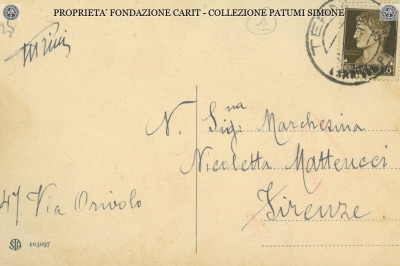 PROPRIETA' FONDAZIONE CARIT - COLLEZIONE PATUMI SIMONE
N. Sig.na Marchesina
Nicoletta Matteucci
47 Via Orivolo
Firenze
STA 103097